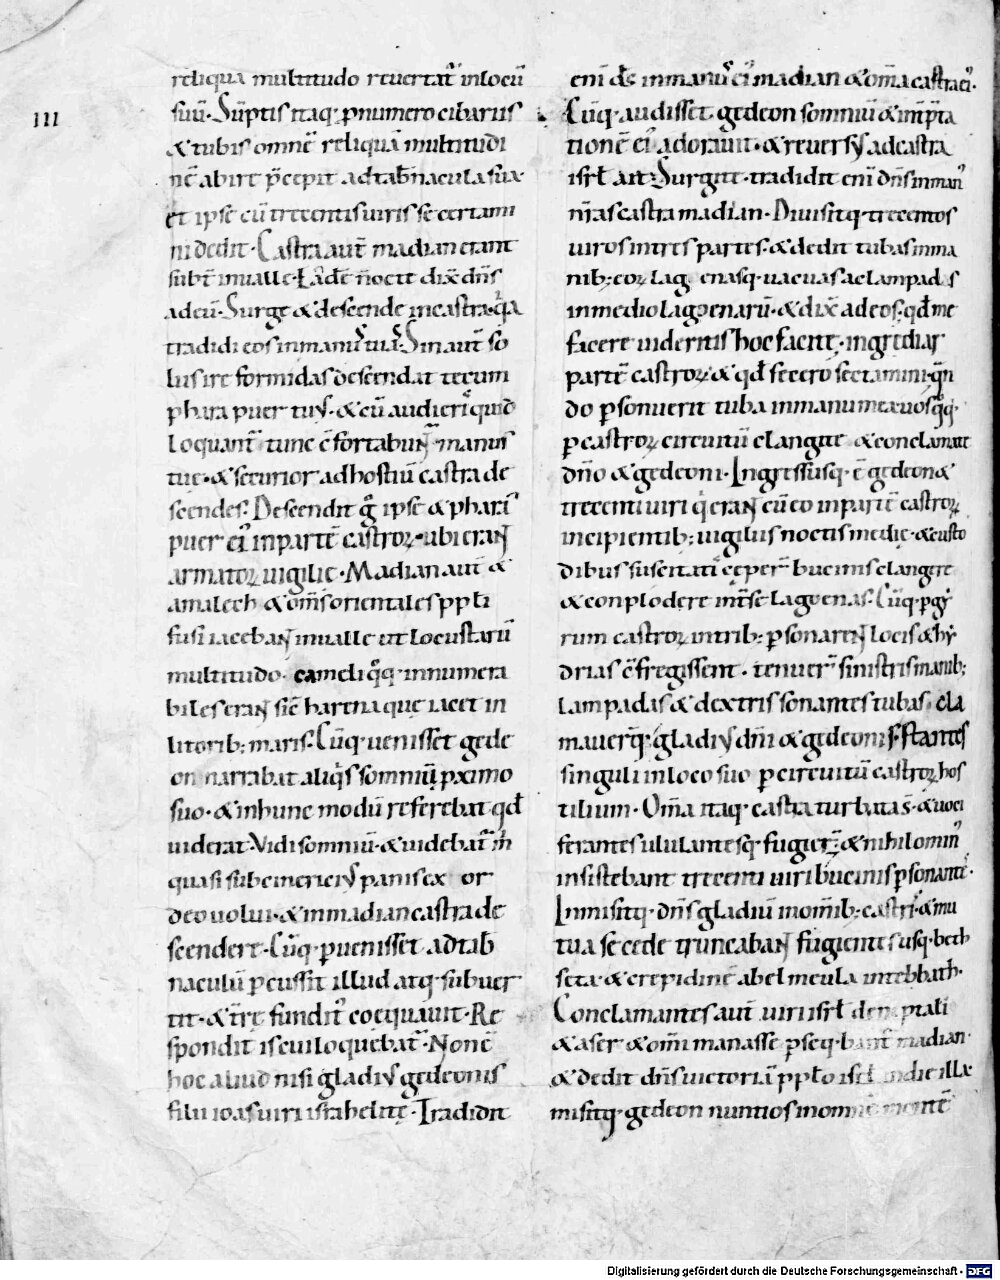 III
reliqua multitudo reuertat̃ inlocũ
suũ. Sũptis itaq· ꝓnumero cibariis
& tubis omnẽ reliquã multitudi
nẽ abire p̃cepit adtab̃nacula sua·
et ipse cũ trecentis uiris se certami
ni dedit· Castra aut̃ madian erant
subt̃ inualle· Eadẽ nocte dix̃ dñs
adeũ· Surge & descende incastra· qͣa
tradidi eos inmanuˢ tuaˢ· Sin aut̃ so
lus ire formidas descendat tecum
phara puer tuus· & cũ audieriˢ quid
loquant̃ tunc c̃fortabunt̃ manus
tuę· & securior adhostiũ castra de
scendes· Descendit gͦ ipse & phara
puer ei' inpartẽ castroꝝ· ubi erant
armatoꝝ uigilię· Madian aut̃ &
amalech & om̃s orientales ppłi
fusi iacebant inualle ut locustarũ
multitudo· cameli qͦq· innumera
biles erant sic̃ harena que iacet in
litorib; maris· Cũq· uenisset gede
on narrabat aliqͥs somniũ ꝓximo
suo· & inhunc modũ referebat qđ
uiderat· Vidi somniũ· & uidebat̃ m̃
quasi subcinericius panis ex or
deo uolui· & inmadian castra de
scendere· Cũq· ꝑuenisset adtab̃
naculũ ꝑcussit illud atq· subuer
tit· & t̃rę fundit' coequauit· Re
spondit is cui loquebat̃· Non ẽ
hoc aliud nisi gladius gedeonis
filii ioas uiri israhelitę· Tradidit
eni d̃s inmanus ei' madian & om̃a castra ei'·
Cũq· audisset gedeon somniũ & int̃pta
tionẽ ei' adorauit· & reuersus adcastra
isrł ait· Surgite· tradidit eni dñs inman'
nr̃as castra madian· Diuisitq· trecentos
uiros intres partes· & dedit tubas inma
nib; eoꝝ lagenasq· uacuas ac lampadas
inmedio lagoenarũ· & dix̃ adeos· qđ me
facere uideritis hoc facite· ingrediar
partẽ castroꝝ· & qđ fecero sectamini· qͣn
do ꝑsonuerit tuba inmanu mea uos qͦq·
ꝑcastroꝝ circuitũ clangite & conclamate
dño & gedeoni· Ingressusq· ẽ gedeon &
trecenti uiri qͥ erant cũ eo inpartẽ castroꝝ
incipientib; uigiliis noctis medię· & custo
dibus suscitatis ceper̃ bucinis clangere
& conplodere int̃se lagoenas· Cũq· ꝑgy
rum castroꝝ intrib; ꝑsonarent locis & hy
drias c̃fregissent· tenuer̃ sinistris manib;
lampadas & dextris sonantes tubas· cla
mauer̃q· gladius dñi & gedeonis· stantes
singuli inloco suo ꝑcircuitũ castroꝝ hos
tilium· Om̃a itaq· castra turbata s̃· & uoci
ferantes ululantesq· fugier̃· & nihilomin'
insistebant trecenti uiri bucinis ꝑsonantes·
Inmisitq· dñs gladiũ inom̃ib; castris· & mu
tua se cede truncabant fugientes usq· beth
seta· & crepidinẽ abelmeula intebbath·
Conclamantes aut̃ uiri isrł de neptali
& aser & om̃i manasse ꝑseq·bant̃ madian·
& dedit dñs uictoriã ppło isrł indie illa·
misitq· gedeon nuntios inomnẽ montẽ
Digitalisierung gefördert durch die Deutsche Forschungsgemeinschaft - DFG